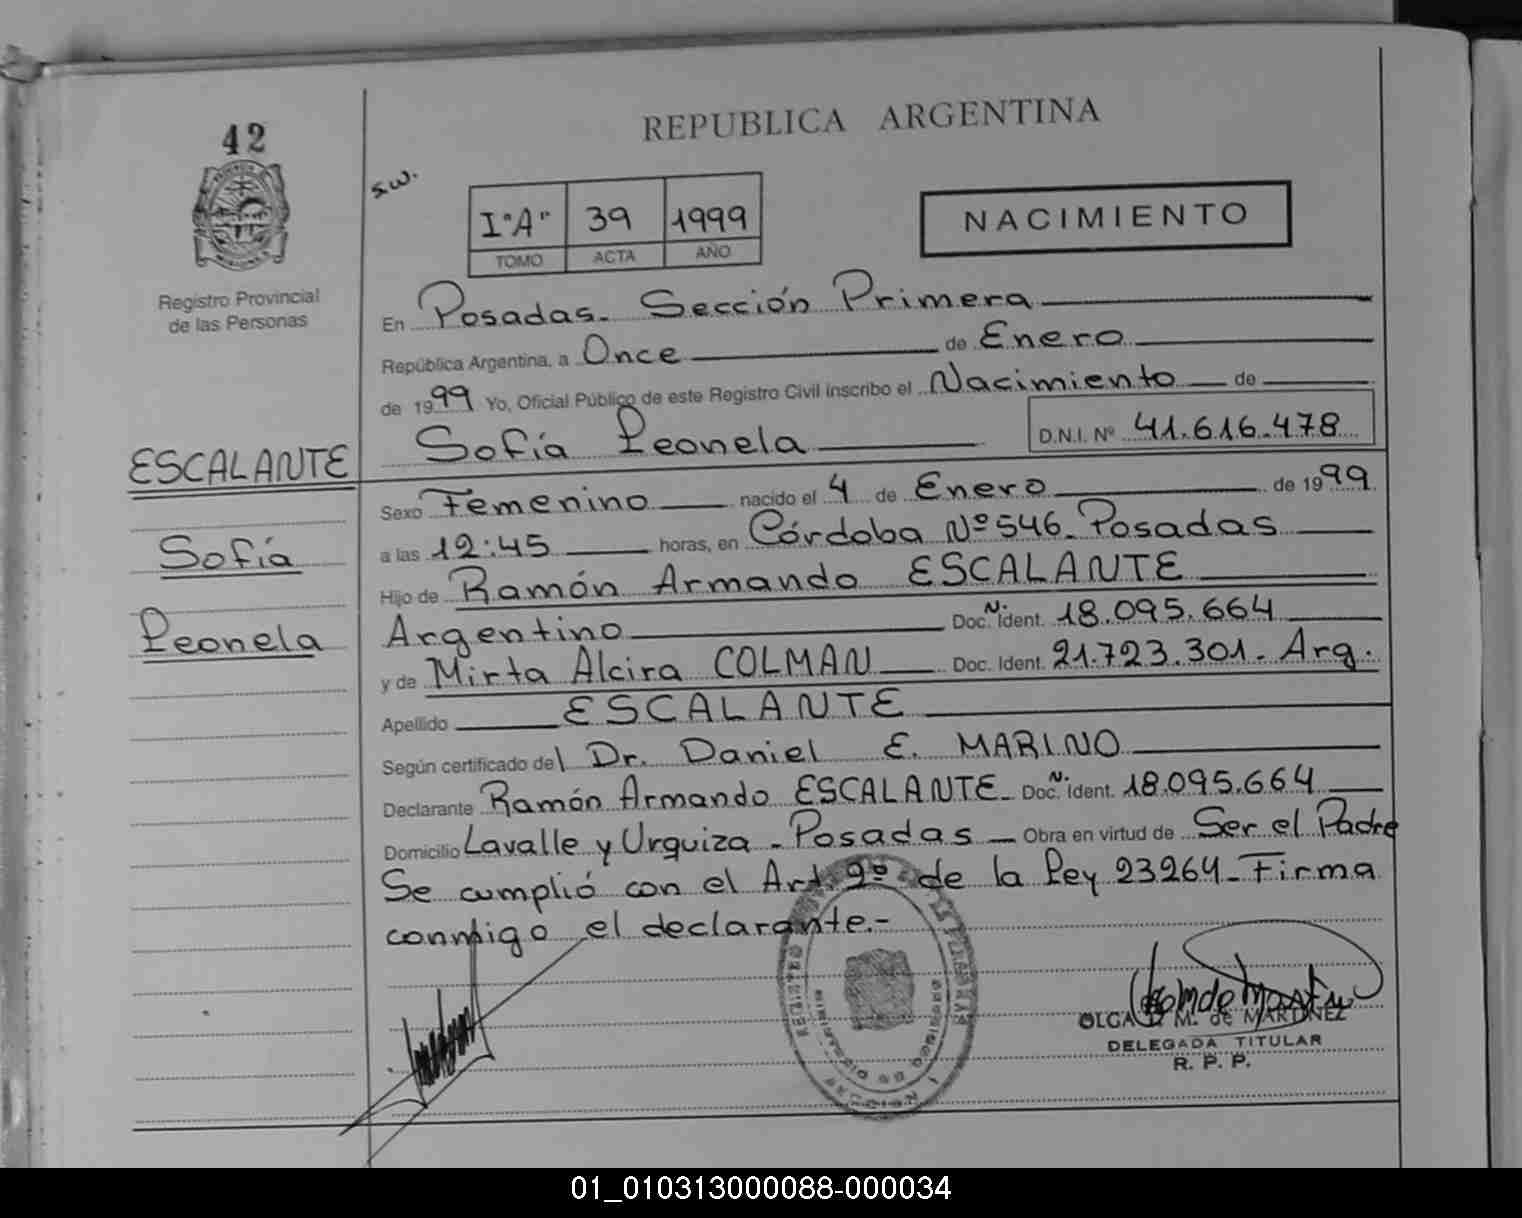 42
REPUBLICA ARGENTINA
s.w.
I "A" 39 1999
TOMO ACTA AÑO
NACIMIENTO
Registro Provincial
de las Personas
En Posadas. Sección Primera
República Argentina, a Once de Enero
de 1999 Yo, Oficial Público de este Registro Civil inscribo el Nacimiento de
Sofía Leonela D.N.I. Nº 41.616.478
ESCALANTE
Sofía
Leonela
Sexo Femenino nacido el 4 de Enero de 1999
a las 12:45 horas, en Córdoba Nº 546. Posadas
Hijo de Ramón Armando ESCALANTE
Argentino Doc. N. Ident. 18.095.664
y de Mirta Alcira COLMAN Doc. Ident. 21.723.301. Arg.
Apellido ESCALANTE
Según certificado del Dr. Daniel E. MARINO
Declarante Ramón Armando ESCALANTE. Doc. N. Ident. 18.095.664
Domicilio Lavalle y Urquiza - Posadas Obra en virtud de Ser el Padre
Se cumplió con el Art. 9º de la Ley 23264 - Firma
conmigo el declarante.-
OLGA M. de MARTINEZ
DELEGADA TITULAR
R. P. P.
01_010313000088-000034